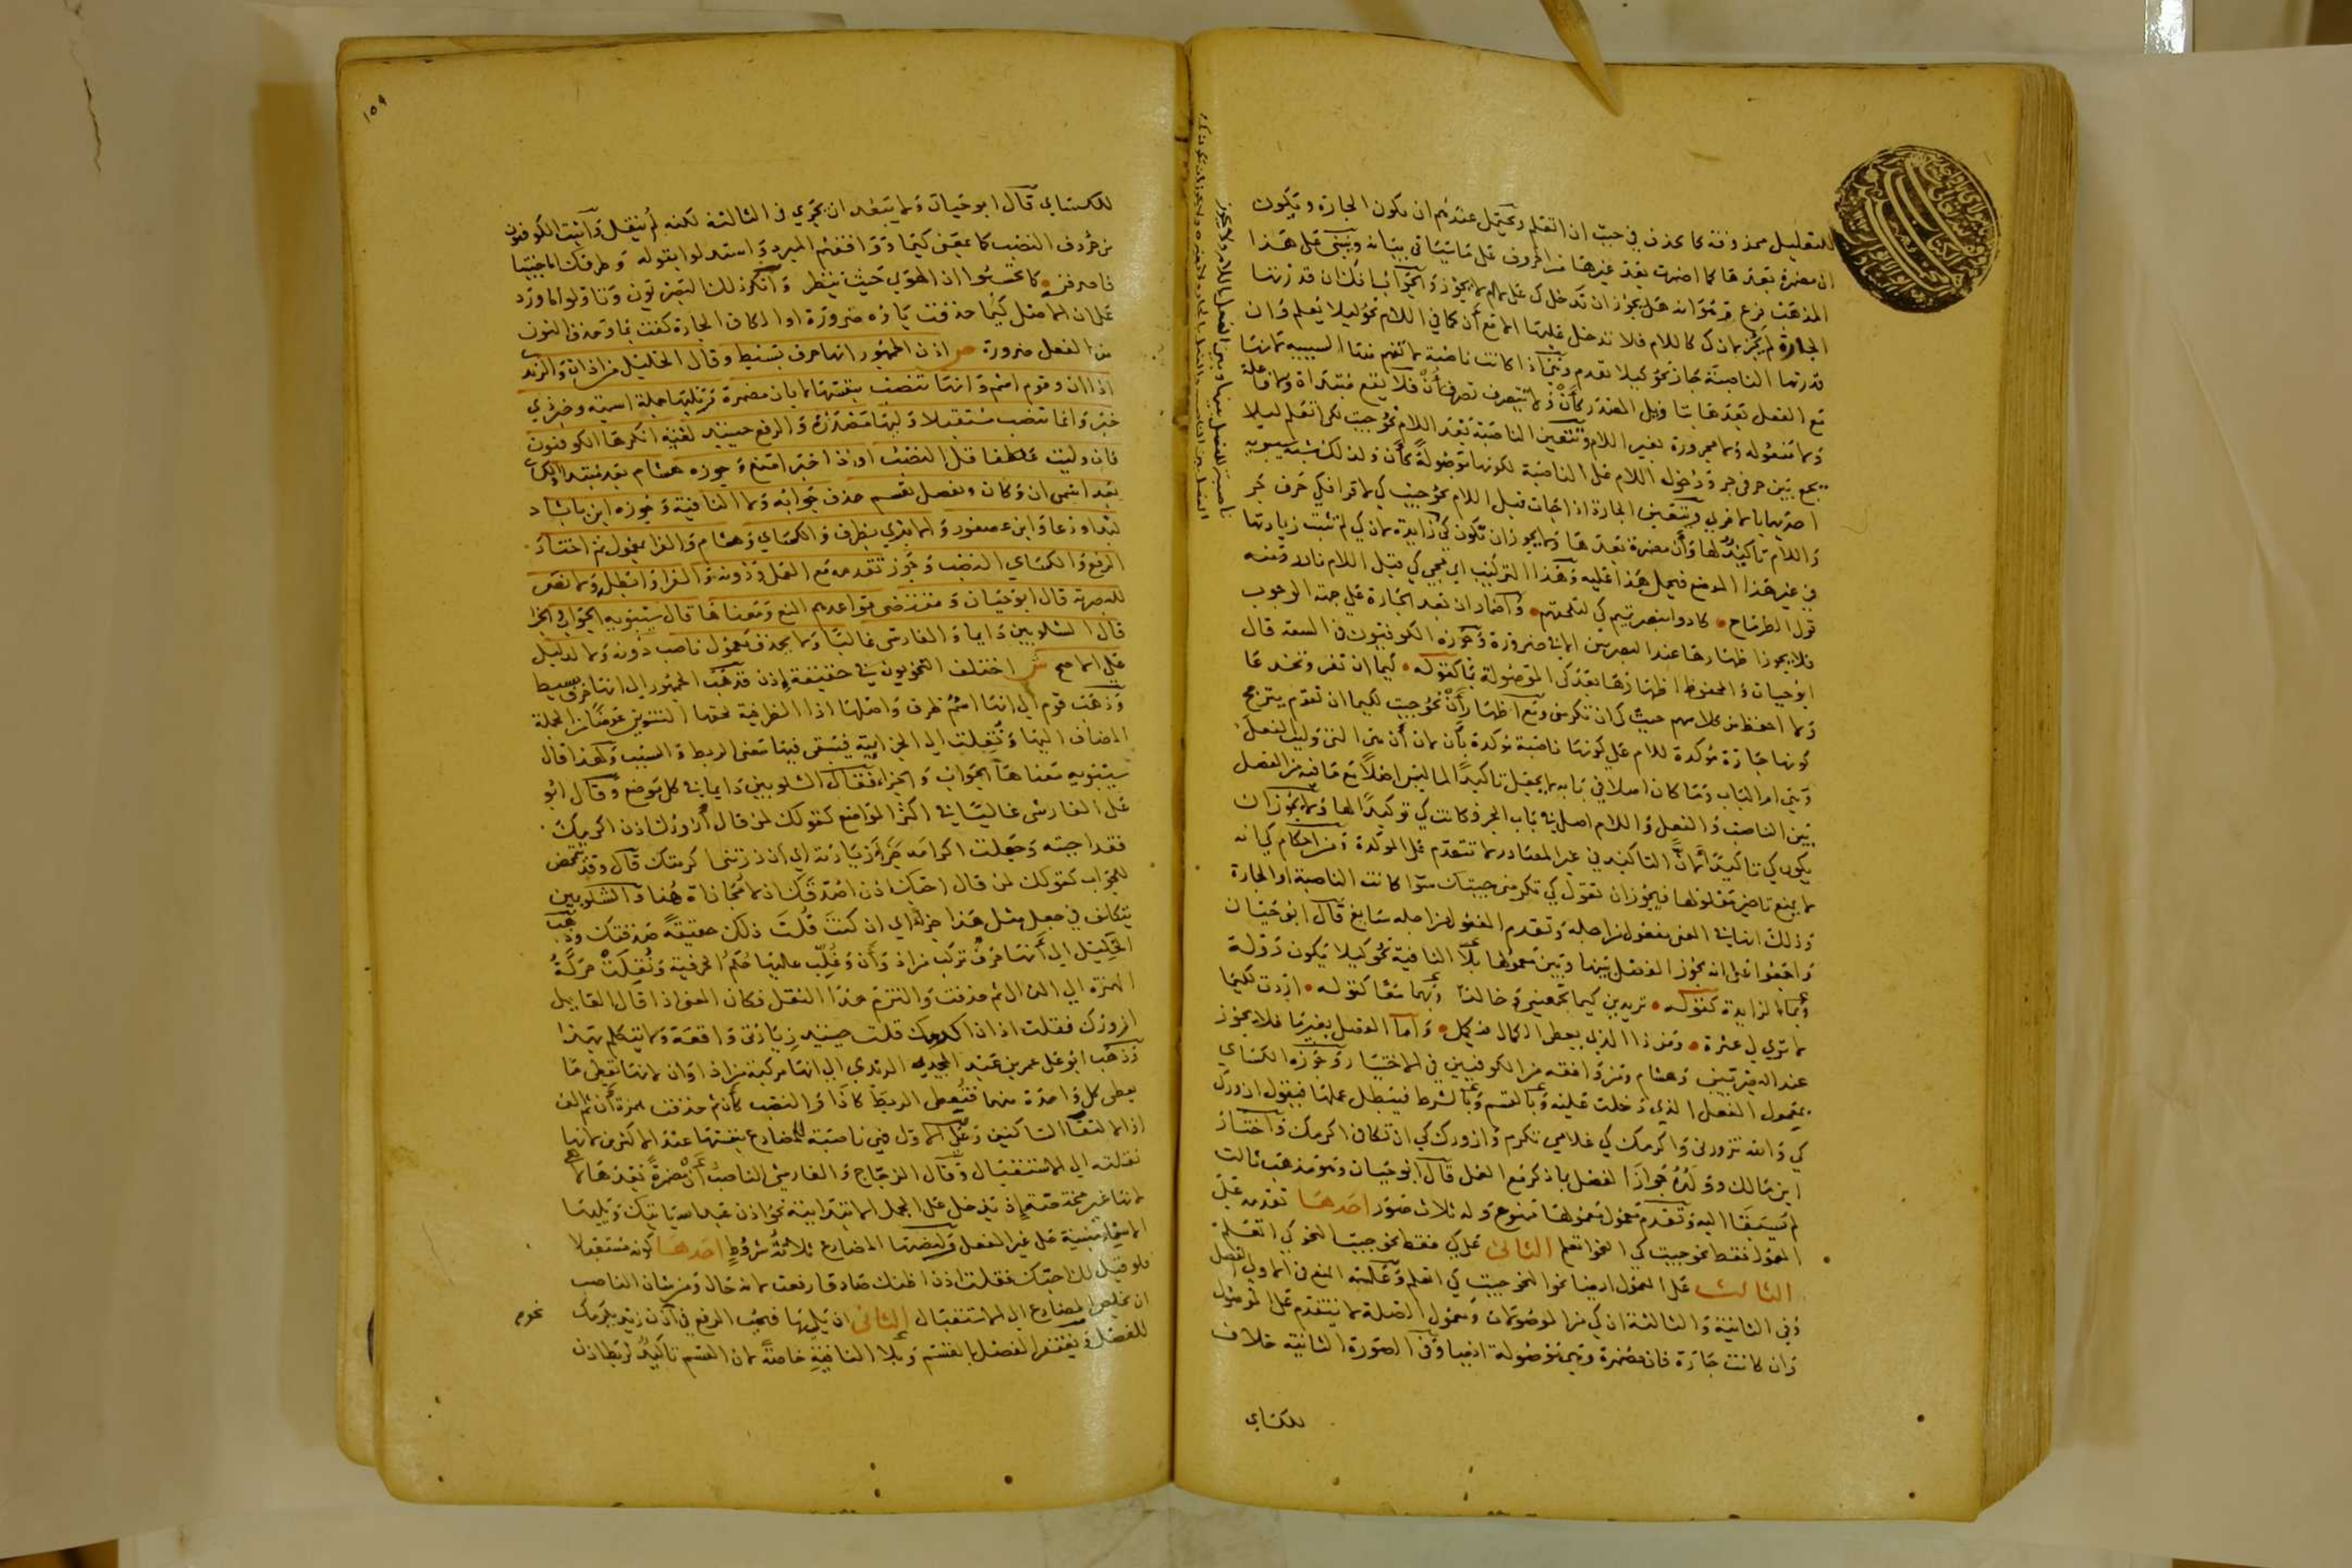 للتعليل محذوفة كما تحذف في جئت ان اتعلم ويحتمل عندهم ان تكون الجارة وتكون
ان مضمرة بعدها كما اضمرت بعد غيرها من الحروف على ما سياتي بيانه وينبني على هذا
المذهب فرع وهو انه هل يجوز ان تدخل كي على لا يجوز والجواب انك ان قدرتها
الجارة لم يجز لان كي كاللام فلا تدخل عليها لا مع أن كما في اللام نحو ليلا يعلم وان
قدرتها الناصبة جاز نحو كيلا تقدم
مع الفعل بعدها بتاويل المصدر كأن ولا تتصرف تصرف أن فلا تقع مبتداة ولا فاعلة
ولا مفعوله ولا مجرورة بغير اللام وتتعين الناصبة بعد اللام نحو جئت لكي اتعلم ليلا
يجمع بين حرفي جر ودخول اللام على الناصبة لكونها موصولة كأن ولذلك شبه سيبويه
احديهما بالاخرى وتتعين الجارة اذا جات قبل اللام نحو جئت كي لاقرا فكي حرف جر
واللام تاكيد لها وأن مضمرة بعدها ولا يجوز ان تكون كي زايدة لان كي لم تثبت زيادتها
في غير هذا الموضع فيحمل هذا عليه وهذا التركيب اي مجي كي قبل اللام نادر ومنه
قول الطرماح كادوا بنصر تميم كي لتلحقهم واضمار ان بعد الجارة على جهة الوجوب
فلا يجوز اظهارها عند البصريين الا في ضرورة وجوزه الكوفيون في السعة قال
ابو حيان والمحفوظ اظهارها بعد كي الموصولة بما كقوله كيما ان تغر وتخدعا
ولا احفظ من كلامهم جئت كي ان تكرمني ومع اظهار أن نحو جئت لكيما ان تقدم يترجح
كونها جارة مؤكدة للام على كونها ناصبة مؤكدة بأن لان أن هي التي وليت الفعل
وهي ام الباب وما كان اصلا في بابه لا يجعل تاكيدا لما ليس اصلا مع ما فيه من الفصل
بين الناصب والفعل واللام اصل في باب الجر وكانت كي توكيدا لها ولا يجوز ان
يكون كي تاكيدا لأن لان التاكيد في غير المصادر لا تتقدم على المؤكدة ومن احكام كي انه
لا يمتنع تاخير معلولها فيجوز ان تقول كي تكرمني جيتك سوا كانت الناصبة او الجارة
وذلك انها في المعنى مفعول من اجله وتقدم المفعول من اجله سايغ قال ابو حيان
واجمعوا على انه يجوز الفصل بينها وبين معمولها بلا النافية نحو كيلا يكون دولة
وبما الزايدة كقوله تريدين كيما تجمعيني وخالدا وبهما معا كقوله اردت لكيما
لا تري لي عثرة ومن ذا الذي يعطى الكمال فيكمل واما الفصل بغيرما فلا يجوز
عند البصريين وهشام ومن وافقه من الكوفيين في الاختيار وجوزه الكساي
بمعمول الفعل الذي دخلت عليه وبالقسم وبالشرط فيبطل عملها فيقول ازورك
كي والله تزورني واكرمك كي غلامي تكرم وازورك كي ان تكافي اكرمك واختار
ابن مالك وولده جواز الفصل بما ذكر مع العمل قال ابو حيان وهو مذهب ثالث
لم يسبقا اليه وتقدم معمول معمولها ممنوع وله ثلاث صور احدها تقدمه على
المعمول فقط نحو جيت كي النحو اتعلم الثانى على كي فقط نحو جيت النحو كي اتعلم
الثالث على العمول ايضا نحو النحو جيت كي اتعلم وعلة المنع في الاولى الفصل
وفي الثانية والثالثة ان كي من الموصولات ومعمول الصلة لا يتقدم على الموصول
وان كانت جارة فان مضمرة وهي موصولة ايضا وفي الصورة الثانية خلاف
للكساي
١٥٩
للكساي قال ابو حيان ولا يبعد ان يجري في الثالثة لكنه لم ينقل واثبت الكوفيون
من حروف النصب كما بمعنى كيما ووافقهم المبرد واستدلوا بقوله وطرفك اما جيتنا
فاصرفنه كما يحسبوا ان الهوى حيث تنظر وانكر ذلك البصريون وتاولوا ما ورد
على ان الاصل كيما حذفت ياؤه ضرورة او الكاف الجارة كفت بما وحذف النون
من الفعل ضرورة ص اذن الجمهور انها حرف بسيط وقال الخليل من اذ ان والرندى
اذا ان وقوم اسم وانها تنصب بنفسها لا بان مضمرة وتليها جملة اسمية وخبر ذي
خبر وانما تنصب مستقبلا وليها مصدرة والرفع حينيذ لغية انكرها الكوفيون
فان وليت عاطفا قل النصب او ذا خبر امتنع وجوزه هشام بعد مبتدا والكساى
بعد اسمي ان وكان ويفصل بقسم حذف جوابه ولا النافية وجوزه ابن بابشاد
بنداء ودعا وابن عصفور والابذي بظرف والكساي وهشام والفرا بمعمول ثم اختار
الرفع والكساي النصب وجوز تقدمه مع العمل ودونه والفرا وابطل ولا نص
للبصرية قال ابو حيان ومقتضى قواعدهم المنع ومعناها قال سيبويه الجواب والجزا
قال الشلوبين دايما والفارسى غالبا ولا يحذف معمول ناصب دونه ولا لدليل
على الاصح ش اختلف النحويون في حقيقة إذن فذهب الجمهور الى انها حرف بسيط
وذهب قوم الى انها اسم ظرف واصلها اذا الظرفية لحقها التنوين عوضا من الجملة
المضاف اليها ونقلت الى الجزائية فبقى فيها معنى الربط والسبب ولهذا قال
سيبويه معناها الجواب والجزاء فقال الشلوبين دايما في كل موضع وقال ابو
على الفارسى غالبا في اكثر المواضع كقولك لمن قال أزورك اذن اكرمك
فقد اجبته وجعلت اكرامه جزاء زيارته اي ان زرتني اكرمتك قال وقد تتمحض
للجواب كقولك لمن قال احبك اذن اصدقك اذ لا مجازاة هنا والشلوبين
يتكلف في جعل مثل هذا جزاء اي ان كنت قلت ذلك حقيقة صدقتك وذهب
الخليل الى أنها حرف تركب من اذ وأن وغلب عليها حكم الحرفية ونقلت حركة
الهمزة الى الذال ثم حذفت والتزم هذا النقل فكان المعنى اذا قال القايل
ازورك فقلت اذ ان اكرمك قلت حينيذ زيارتى واقعة ولا يتكلم بهذا
وذهب ابو على عمر بن عبد المجيد الرندي الى انها مركبة من اذا وان لانها تعطى ما
يعطى كل واحدة منهما فتعطى الربط كاذا والنصب كأن ثم حذفت همزة أن ثم الف
اذا لالتقا الساكنين وعلى الاول فهي ناصبة للمضارع بنفسها عند الاكثرين لانها
نقلته الى الاستقبال وقال الزجاج والفارسى الناصب أن مضمرة بعدها لا هي
لانها غير مختصة إذ تدخل على الجمل الابتدائية نحو اذن عبد الله ياتيك وتليها
الاسماء مبنية على غير الفعل ولنصبها المضارع ثلاثة شروط احدها كونه مستقبلا
فلو قيل لك احبك فقلت اذن اظنك صادقا رفعت لانه حال ومن شان الناصب
ان يخلص المضارع الى الاستقبال الثانى ان يليها فيجب الرفع في اذن زيد يكرمك نحوم
للفصل ويغتفر الفصل بالقسم وبلا النافية خاصة لان القسم تاكيد لربط اذن